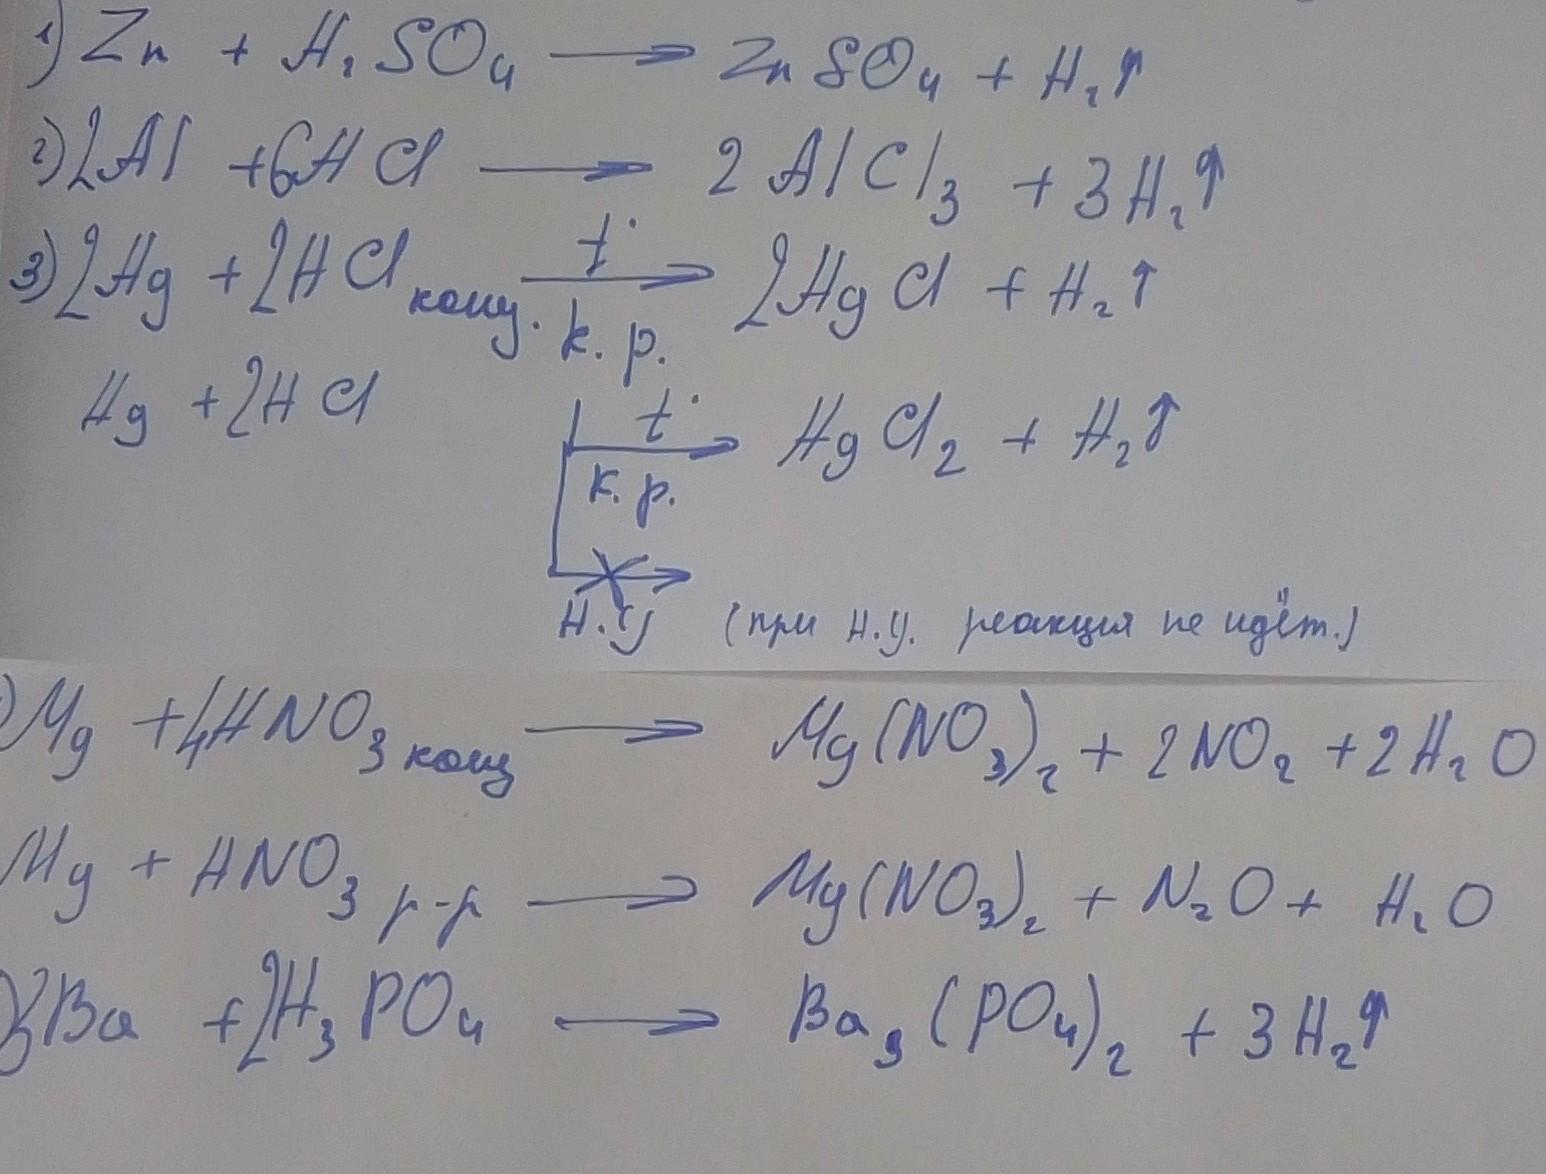 1) Zn + H₂SO₄ ⟶ ZnSO₄ + H₂↑
2) 2Al + 6HCl ⟶ 2AlCl₃ + 3H₂↑
3) 2Hg + 2HCl конц. t° к.р. ⟶ 2HgCl + H₂↑
Hg + 2HCl t° к.р. ⟶ HgCl₂ + H₂↑
Н.У (при н.у. реакция не идёт.)
) Mg + 4HNO₃ конц ⟶ Mg(NO₃)₂ + 2NO₂ + 2H₂O
Mg + HNO₃ р-р ⟶ Mg(NO₃)₂ + N₂O + H₂O
3Ba + 2H₃PO₄ ⟶ Ba₃(PO₄)₂ + 3H₂↑